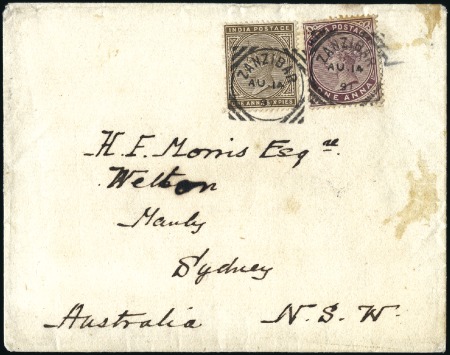 INDIA POSTAGE
ZANZIBAR
AU 14
ONE ANNA SIX PIES
POSTAGE
ZANZIBAR
AU 14
ONE ANNA
H. F. Morris Esqre.
Welton
Manly
Sydney
Australia N. S. W.